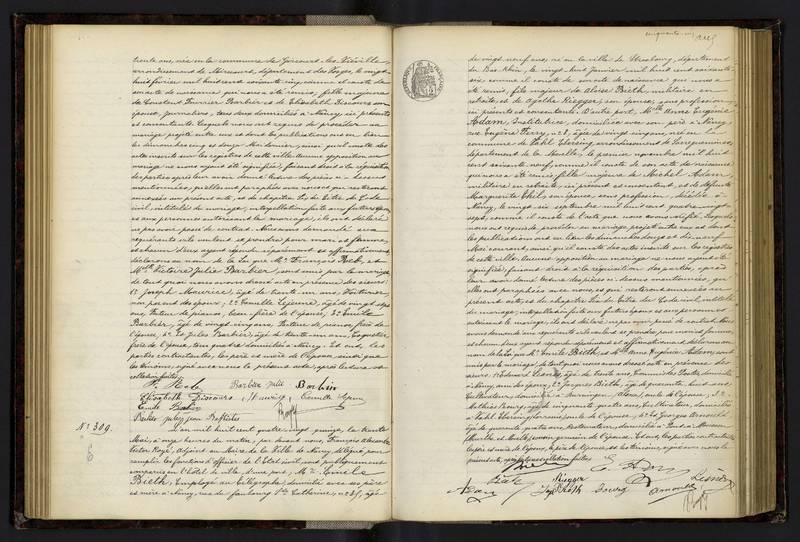 trente ans, née en la commune de
arrondissement de Mirecourt, département des Vosges, le vingt
huit février mil huit cent soixante cinq, comme il conste de
son acte de naissance qui nous a été remis, fille majeure
de Constant Barbier et de Elisabeth Discours son
épouse, journaliers, tous deux domiciliés à Nancy, ici présents
et consentants. Lesquels nous ont requis de procéder au
mariage projeté entre eux et dont les publications ont eu lieu
les dimanches cinq et douze Mai dernier, ainsi qu'il conste des
actes inscrits sur les registres de cette ville. Aucune opposition au
mariage ne nous ayant été signifiée, faisant droit à la réquisition
des parties, après leur avoir donné lecture des pièces ci-dessus
mentionnées, qu'elles ont paraphées avec nous et qui resteront
annexées au présent acte, et du chapitre Six du titre du Code
civil intitulé du mariage; interpellation faite aux futurs époux
et aux personnes autorisant le mariage, ils ont déclaré
ne pas avoir passé de contrat. Nous avons demandé aux
requérants s'ils veulent se prendre pour mari et femme,
et chacun d'eux ayant répondu séparément et affirmativement,
déclarons au nom de la Loi que Mr François et
Mlle Victoire Julie Barbier, sont unis par le mariage
de tout quoi nous avons dressé acte en présence des sieurs:
1° Joseph Maurice, âgé de trente un ans,
non parent des époux; 2° Camille Lejeune, âgé de vingt sept
ans, facteur de pianos, beau-frère de l'épouse; 3° Emile
Barbier, âgé de vingt cinq ans, facteur de pianos, frère de
l'épouse; 4° Jules Barbier, âgé de trente un ans,
frère de l'épouse, tous quatre domiciliés à Nancy. Et ont, les
parties contractantes, les père et mère de l'épouse ainsi que
les témoins, signé avec nous le présent acte, après lecture et
collation faites.
Barbier Julie Barbier
Elisabeth Discours Maurice Camille Lejeune
Emile Barbier
Barbier Jules Jean Baptiste
N° 309.
L'an mil huit cent quatre vingt quinze, le trente
Mai, à onze heures du matin, par devant nous, François Alexandre
Victor Adjoint au Maire de la Ville de Nancy, délégué pour
remplir les fonctions d'officier de l'Etat civil, ont publiquement
comparu en l'hôtel de ville, d'une part, Mr Emile
Bieth, Employé au télégraphe, domicilié avec ses père
et mère à Nancy, rue du faubourg Ste Catherine, n° 25, âgé
de vingt neuf ans, né en la ville de Strasbourg, département
du Bas-Rhin, le vingt huit janvier mil huit cent soixante-
six, comme il conste de son acte de naissance qui nous a
été remis, fils majeur de Aloïse Bieth, militaire en
retraite, et de Agathe Riegger, son épouse, sans profession,
ici présents et consentants. D'autre part, Mlle Anne Eugénie
Adam, Institutrice, domiciliée avec son père à Nancy,
rue Eugène Ferry, n° 8, âgée de vingt cinq ans, née en la
commune de Kahl-Ebersing, arrondissement de Sarreguemines,
département de la Moselle, le premier novembre mil huit
cent soixante neuf, comme il conste de son acte de naissance
qui nous a été remis, fille majeure de Michel Adam,
militaire en retraite, ici présent et consentant, et de défunte
Marguerite Thil, son épouse, sans profession, décédée à
Nancy, le vingt six septembre mil huit cent quatre vingt
sept, comme il conste de l'acte que nous avons vérifié. Lesquels
nous ont requis de procéder au mariage projeté entre eux et dont
les publications ont eu lieu les dimanches douze et dix-neuf
Mai courant, ainsi qu'il conste des actes inscrits sur les registres
de cette ville. Aucune opposition au mariage ne nous ayant été
signifiée, faisant droit à la réquisition des parties, après
leur avoir donné lecture des pièces ci-dessus mentionnées, qu'
elles ont paraphées avec nous, et qui resteront annexées au
présent acte, et du chapitre Six du titre du Code civil, intitulé
du mariage; interpellation faite aux futurs époux et aux personnes
autorisant le mariage, ils ont déclaré ne pas avoir passé de contrat. Nous
avons demandé aux requérants s'ils veulent se prendre pour mari et femme,
et chacun d'eux ayant répondu séparément et affirmativement, déclarons au
nom de la loi que Mr Emile Bieth, et Mlle Anne Eugénie Adam, sont
unis par le mariage, de tout quoi nous avons dressé acte en présence des
sieurs: 1° Edouard âgé de trente ans, Commis des Postes, domicilié
à Nancy, ami des époux; 2° Jacques Bieth, âgé de quarante huit ans,
Cultivateur, domicilié à oncle de l'époux; 3°
Mathias âgé de cinquante quatre ans, Cultivateur, domicilié
à Kahl-Ebersing, de l'épouse; 4° Georges Arnould,
âgé de quarante quatre ans, Restaurateur, domicilié à Pont-à-Mousson,
Meurthe et Moselle, cousin germain de l'épouse. Et ont, les parties contractantes,
les père et mère de l'époux, le père de l'épouse et les témoins, signé avec nous le
présent acte, après lecture et collation faites.
Bieth E. Adam
Adam Riegger Bieth Arnould